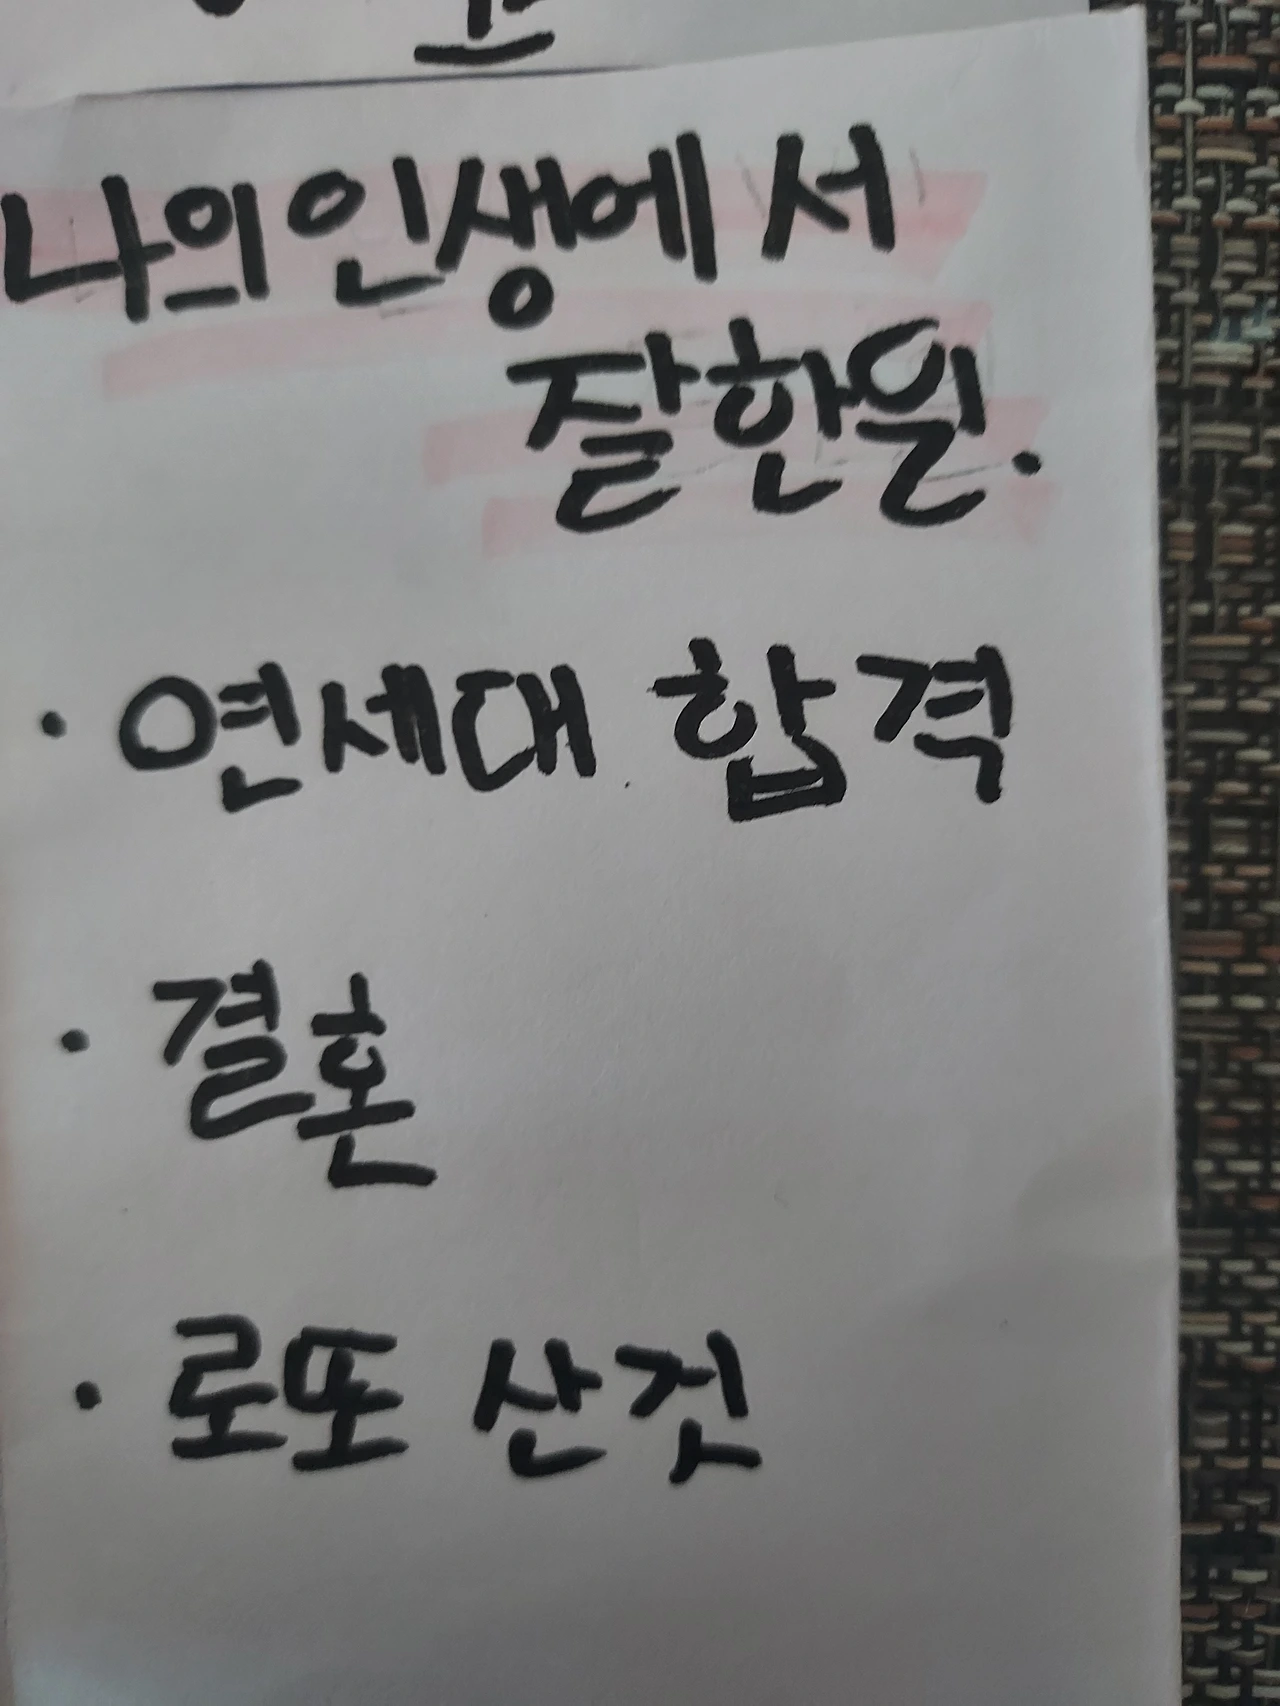 나의 인생에서
잘한일.
· 연세대 합격
· 결혼
· 로또 산것